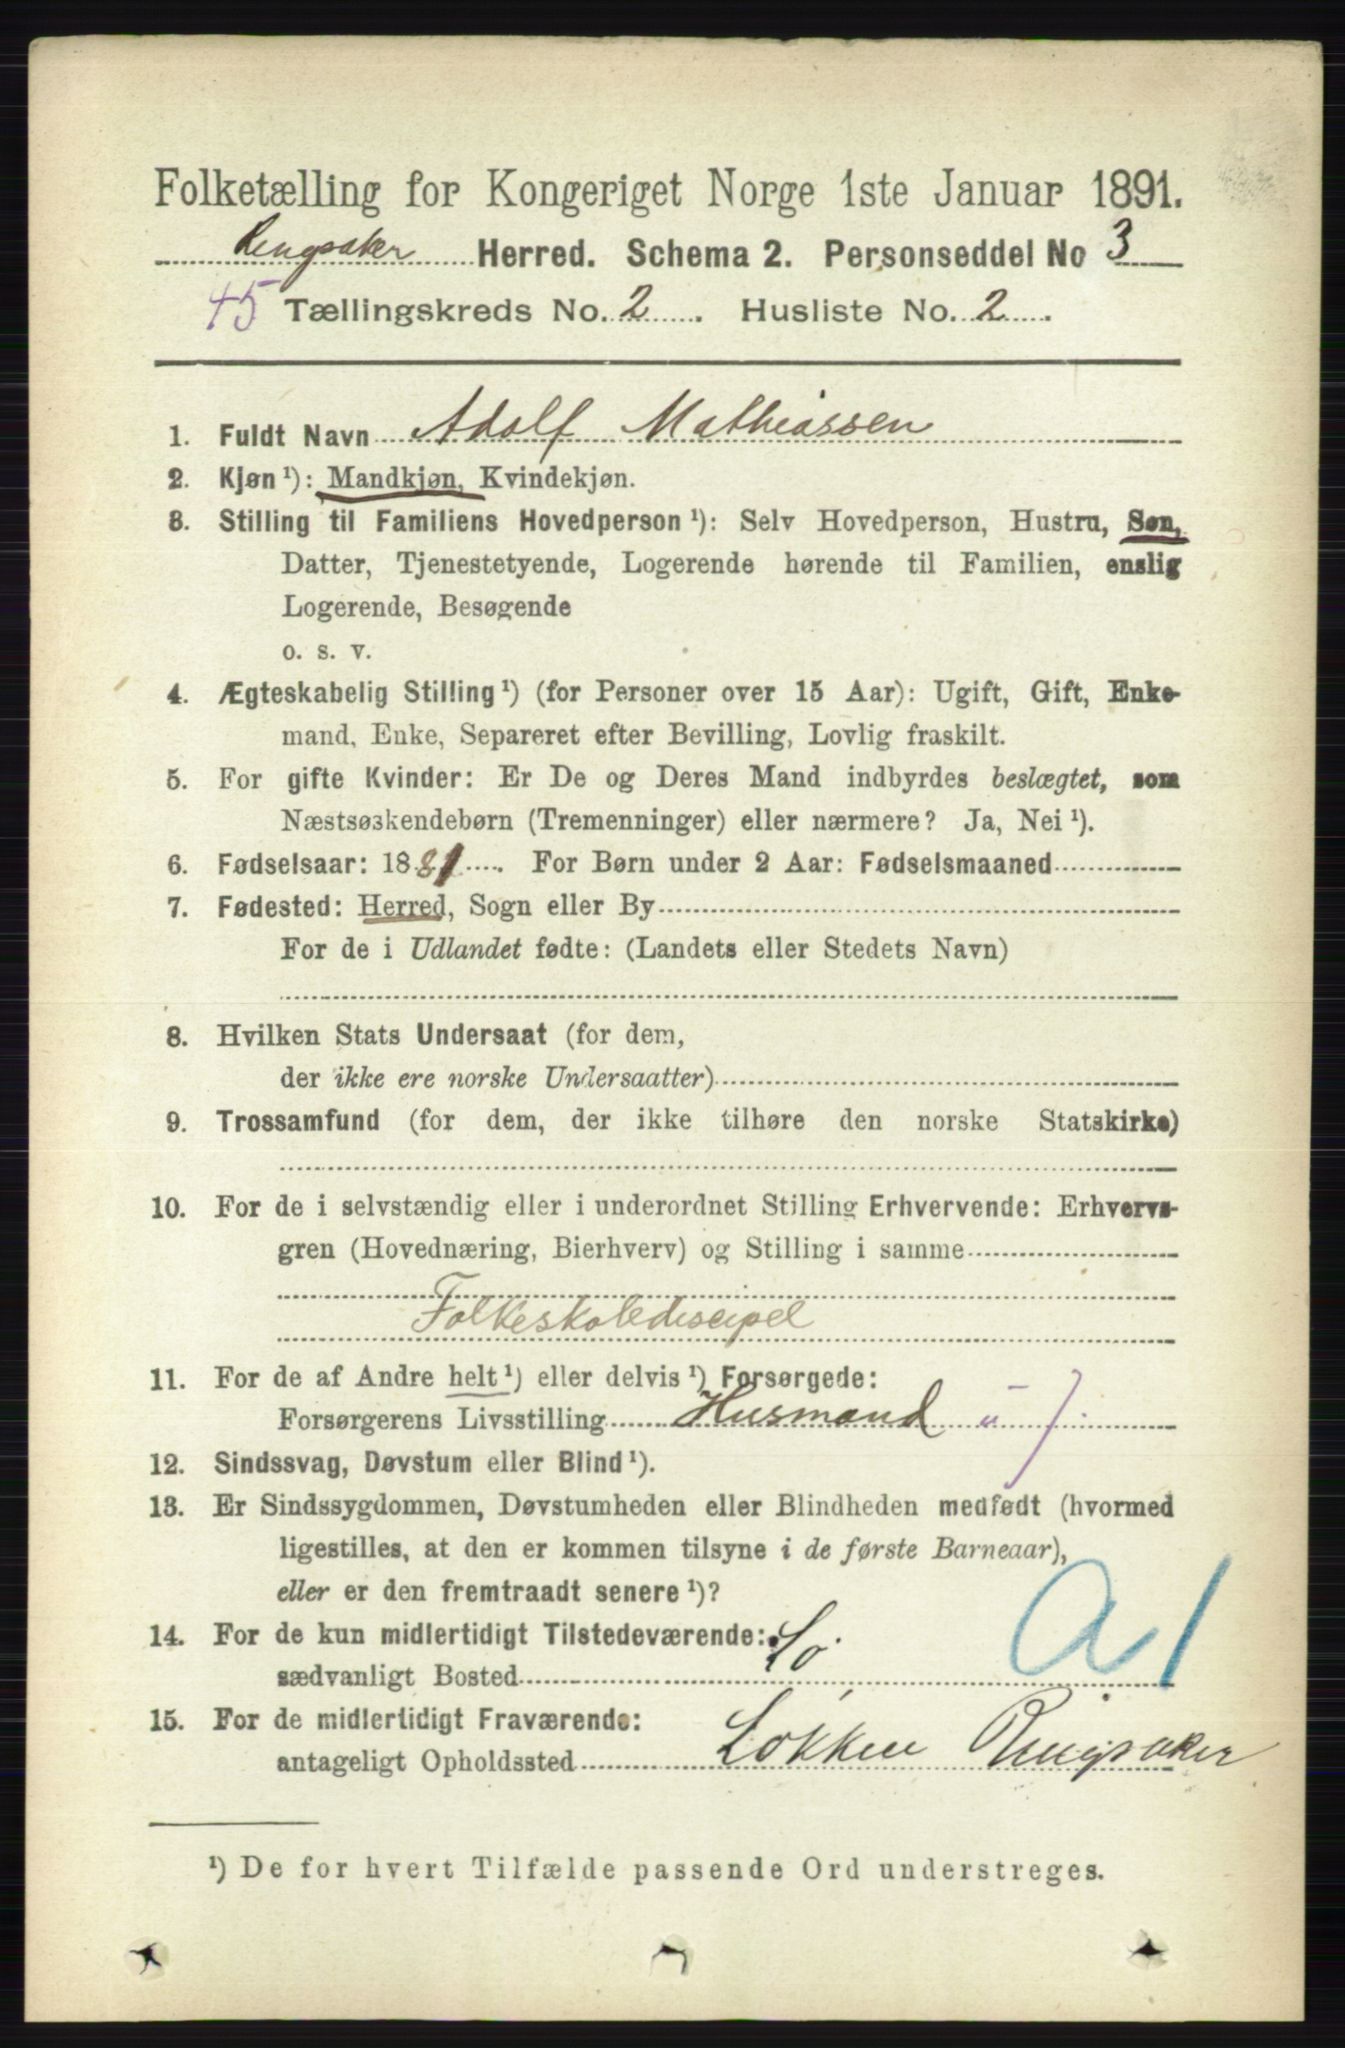 Folketælling for Kongeriget Norge 1ste Januar 1891.
Ringsaker Herred. Schema 2. Personseddel No 3
45 Tællingskreds No. 2. Husliste No. 2.
1. Fuldt Navn Adolf Mathiassen
2. Kjøn ¹): Mandkjøn, Kvindekjøn.
3. Stilling til Familiens Hovedperson ¹): Selv Hovedperson, Hustru, Søn,
Datter, Tjenestetyende, Logerende hørende til Familien, enslig
Logerende, Besøgende
o. s. v.
4. Ægteskabelig Stilling ¹) (for Personer over 15 Aar): Ugift, Gift, Enke-
mand, Enke, Separeret efter Bevilling, Lovlig fraskilt.
5. For gifte Kvinder: Er De og Deres Mand indbyrdes beslægtet, som
Næstsøskendebørn (Tremenninger) eller nærmere? Ja, Nei ¹).
6. Fødselsaar: 1881. For Børn under 2 Aar: Fødselsmaaned
7. Fødested: Herred, Sogn eller By
For de i Udlandet fødte: (Landets eller Stedets Navn)
8. Hvilken Stats Undersaat (for dem,
der ikke ere norske Undersaatter)
9. Trossamfund (for dem, der ikke tilhøre den norske Statskirke)
10. For de i selvstændig eller i underordnet Stilling Erhvervende: Erhvervs-
gren (Hovednæring, Bierhverv) og Stilling i samme
Folkeskolediscipel
11. For de af Andre helt ¹) eller delvis ¹) Forsørgede:
Forsørgerens Livsstilling Husmand
12. Sindssvag, Døvstum eller Blind ¹).
13. Er Sindssygdommen, Døvstumheden eller Blindheden medfødt (hvormed
ligestilles, at den er kommen tilsyne i de første Barneaar),
eller er den fremtraadt senere ¹)?
14. For de kun midlertidigt Tilstedeværende: Lö
sædvanligt Bosted a 1
15. For de midlertidigt Fraværende:
antageligt Opholdssted Lökken Ringsaker
¹) De for hvert Tilfælde passende Ord understreges.